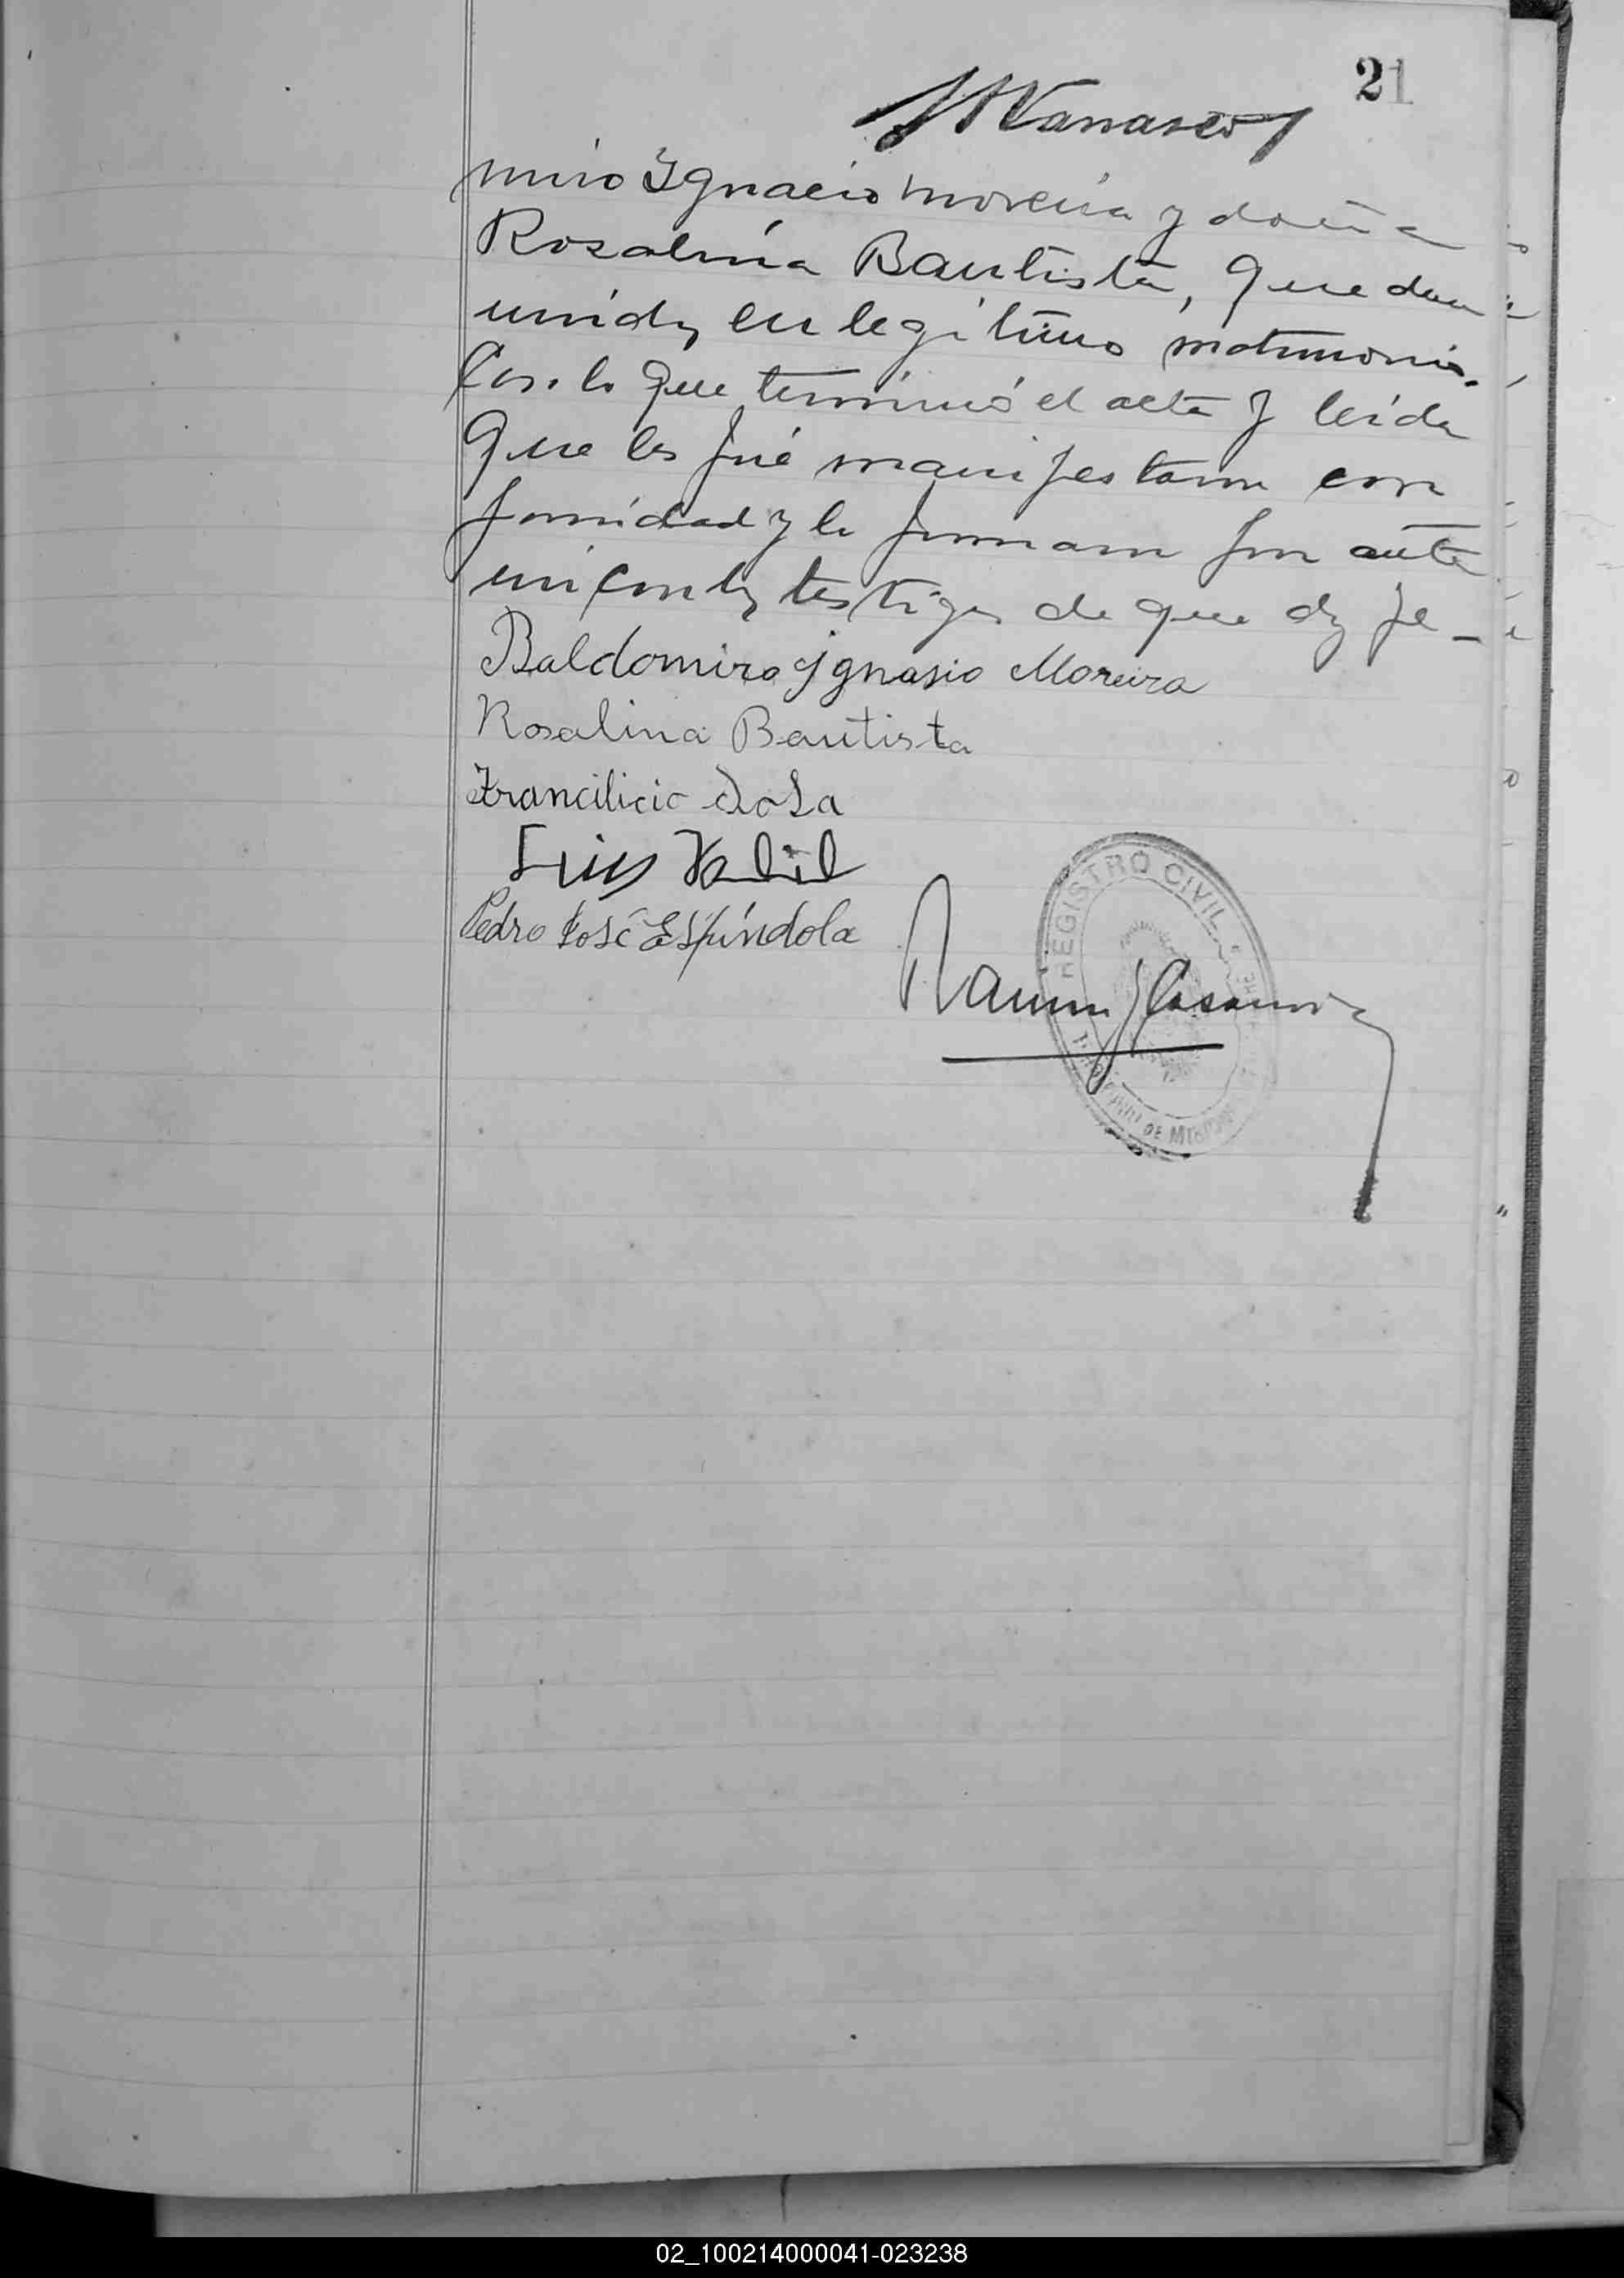 21
miro Ygnacio Moreira y doña
Rosalina Bautista, quedan
unidos en legítimo matrimonio.
Con lo que terminó el acta y leída
que les fué manifestaron con
formidad y la firmaron por ante
mí con los testigos de que doy fe—
Baldomiro Ygnasio Moreira
Rosalina Bautista
Francilicio
Luis
Pedro José Espíndola
REGISTRO CIVIL
Ramon
DE MISIONES
02_100214000041-023238